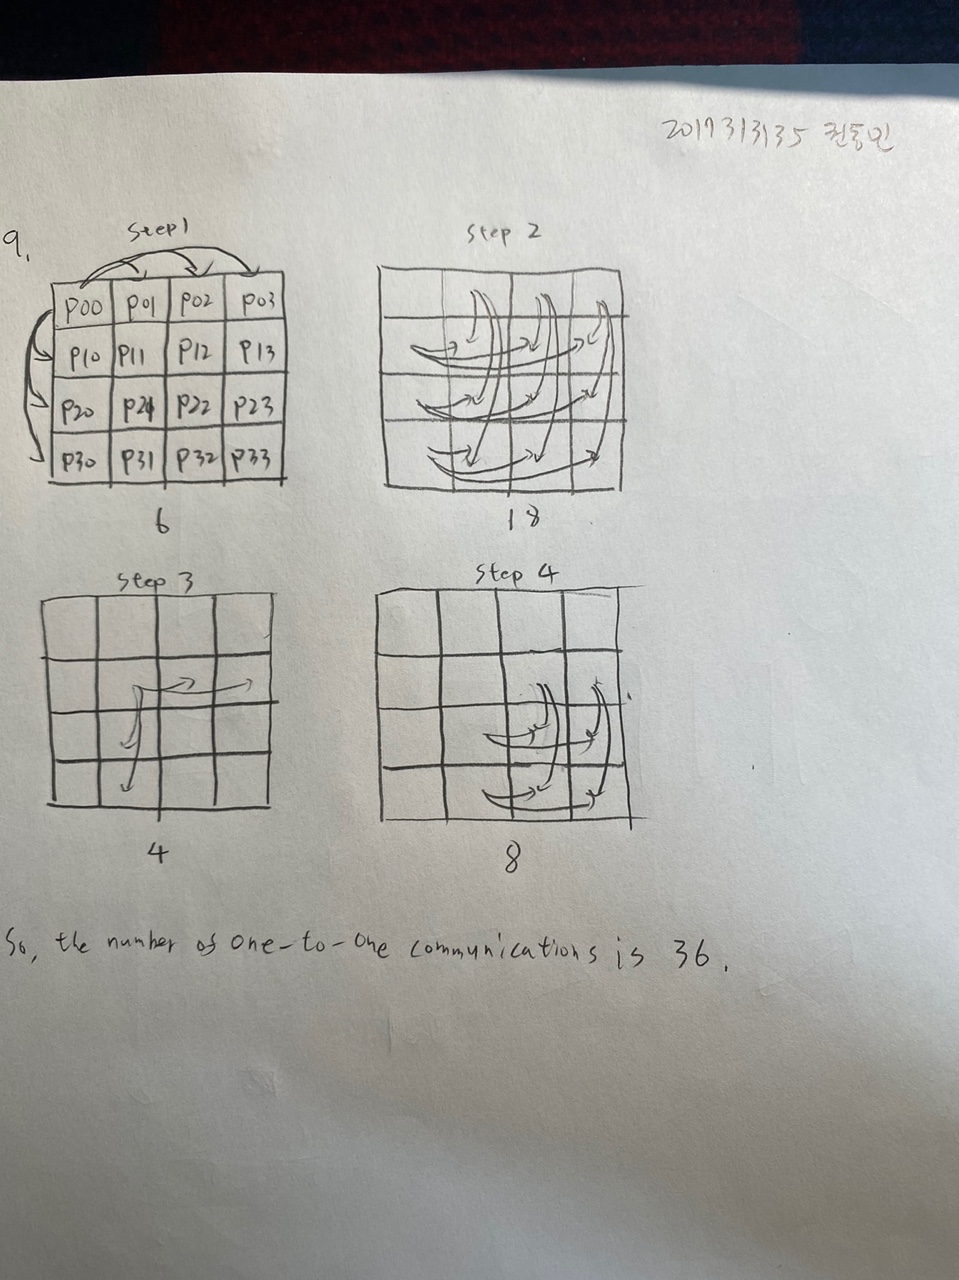 2017313135 권동민
9.
Step1
P00 P01 P02 P03
P10 P11 P12 P13
P20 P21 P22 P23
P30 P31 P32 P33
6
Step 2
18
Step 3
4
Step 4
8
So, the number of one-to-one communications is 36.